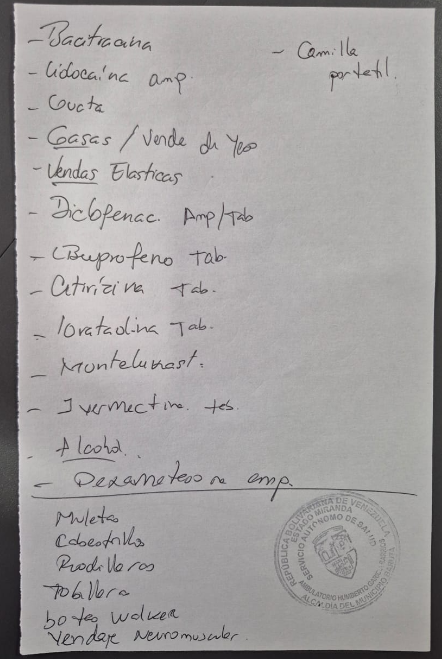 - Bacitracina
- Camilla
portatil.
- Lidocaína amp.
- Gasas / Venda de Yeso
- Vendas Elasticas
- Diclofenac. Amp/Tab
- Ibuprofeno Tab.
- Cetirizina Tab.
- loratadina Tab.
- Montelukast.
- Ivermectina. tab.
- Alcohol.
- Dexametasona amp.
Muletas
Cabestrillo
Rodilleras
Tobillera
botas Walker
Vendaje Neuromuscular.
REPUBLICA BOLIVARIANA DE VENEZUELA
ESTADO MIRANDA
SERVICIO AUTONOMO DE SALUD
AMBULATORIO HUMBERTO
ALCALDIA DEL MUNICIPIO